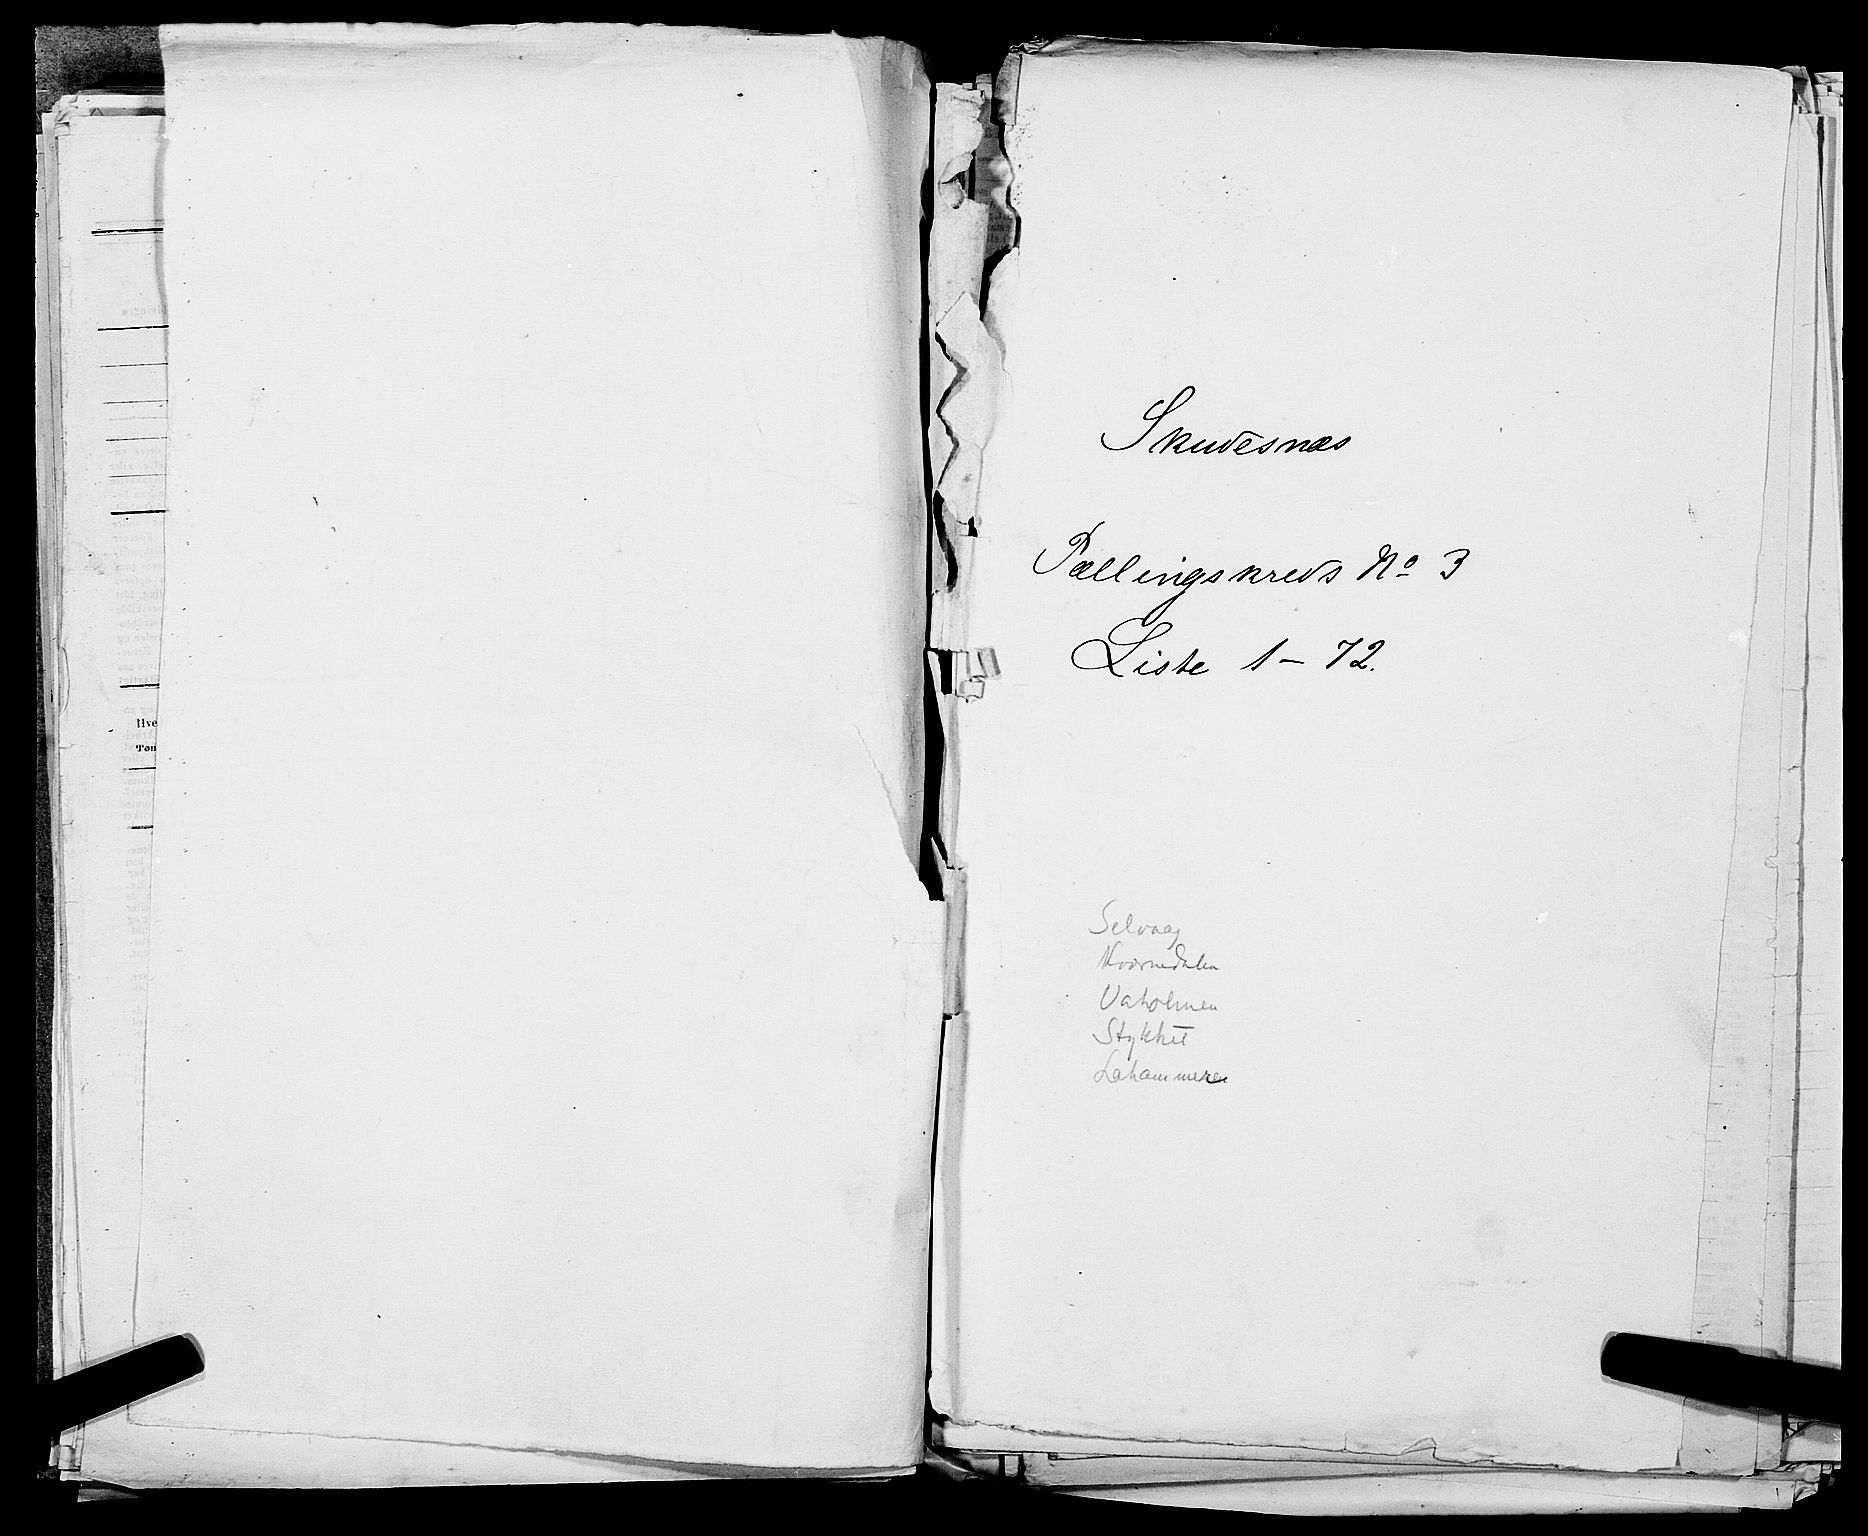 Hve
Tøn
Skudesnæs
Tællingskreds No 3
Liste 1 – 72.
Selvaag
Kværnedalen
Vaholmen
Stykket
Lahammeren